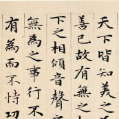 天下皆知美之
善已故有無之
下之相傾音聲之
無為之事行不
有為而不恃功